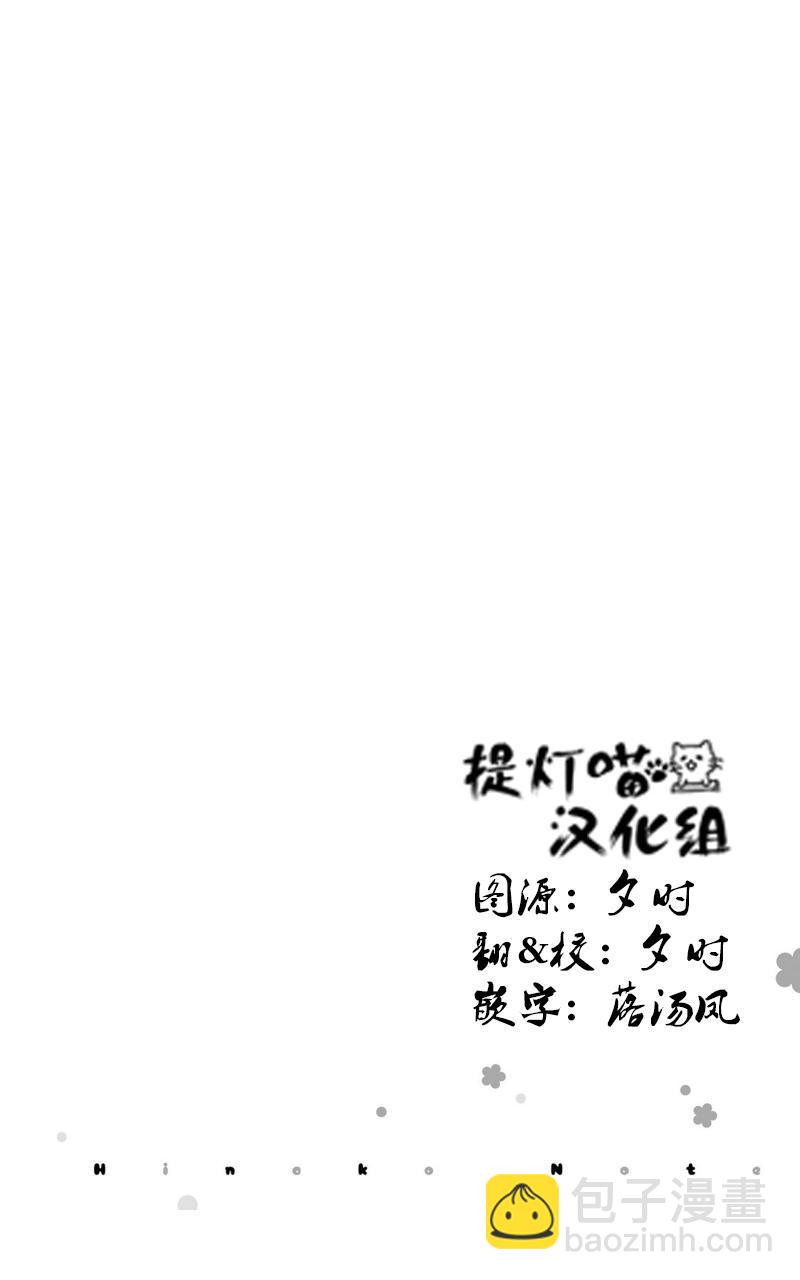 提灯喵
汉化组
图源：夕时
翻&校：夕时
嵌字：落汤凤
Hinako Note
包子漫畫
baozimh.com